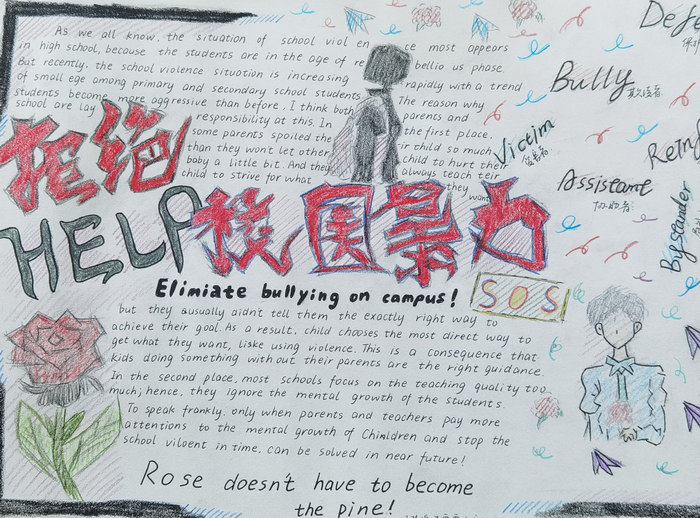 As we all know, the situation of school viol en ce most appears
in high school, because the students are in the age of re bellio us phase.
But recently, the school violence situation is increasing rapidly with a trend
of small ege among primary and secondary school students. The reason why
students become more aggressive than before, I think both parents and
school are lay responsibility at this. In the first place,
some parents spoiled the ir child so much
than they won't let other child to hurt their
baby a little bit. And they always teach teir
child to strive for what they want
拒绝
HELP
校园暴力
Elimiate bullying on campus!
SOS
but they ausually didn't tell them the exactly right way to
achieve their goal. As a result, child chooses the most direct way to
get what they want, liske using violence. This is a consequence that
kids doing something without their parents are the right guidance.
In the second place, most schools focus on the teaching quality too
much; hence, they ignore the mental growth of the students.
To speak frankly, only when parents and teachers pay more
attentions to the mental growth of Chinldren and stop the
school viloent in time, can be solved in near future!
Rose doesn't have to become
the pine!
Bully
欺凌者
Victim
受害者
Assistant
协助者
Bystander